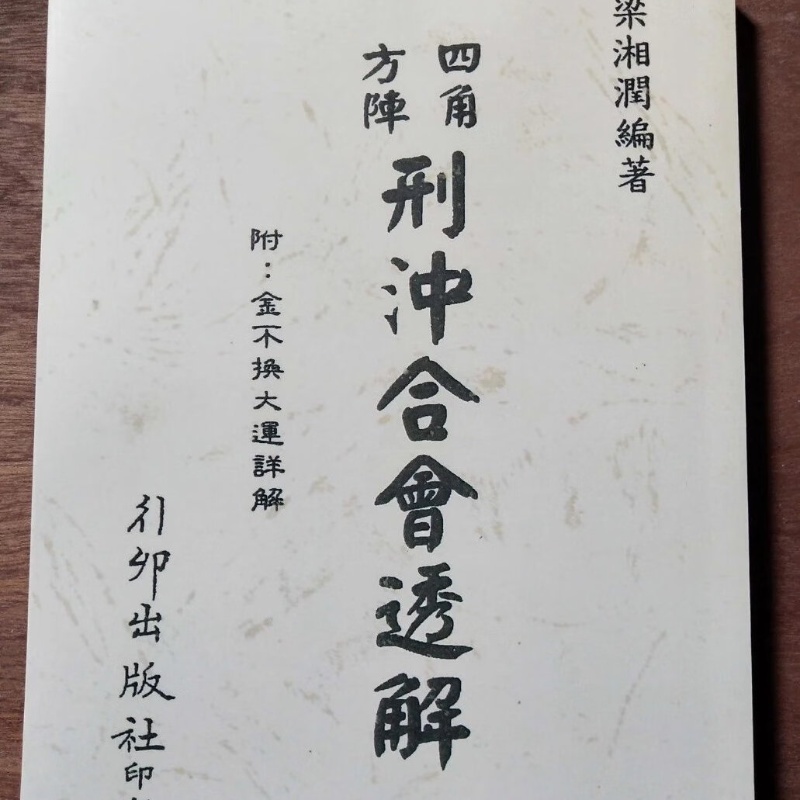 梁湘潤編著
四角
方陣
刑沖合會透解
附：金不換大運詳解
行卯出版社印